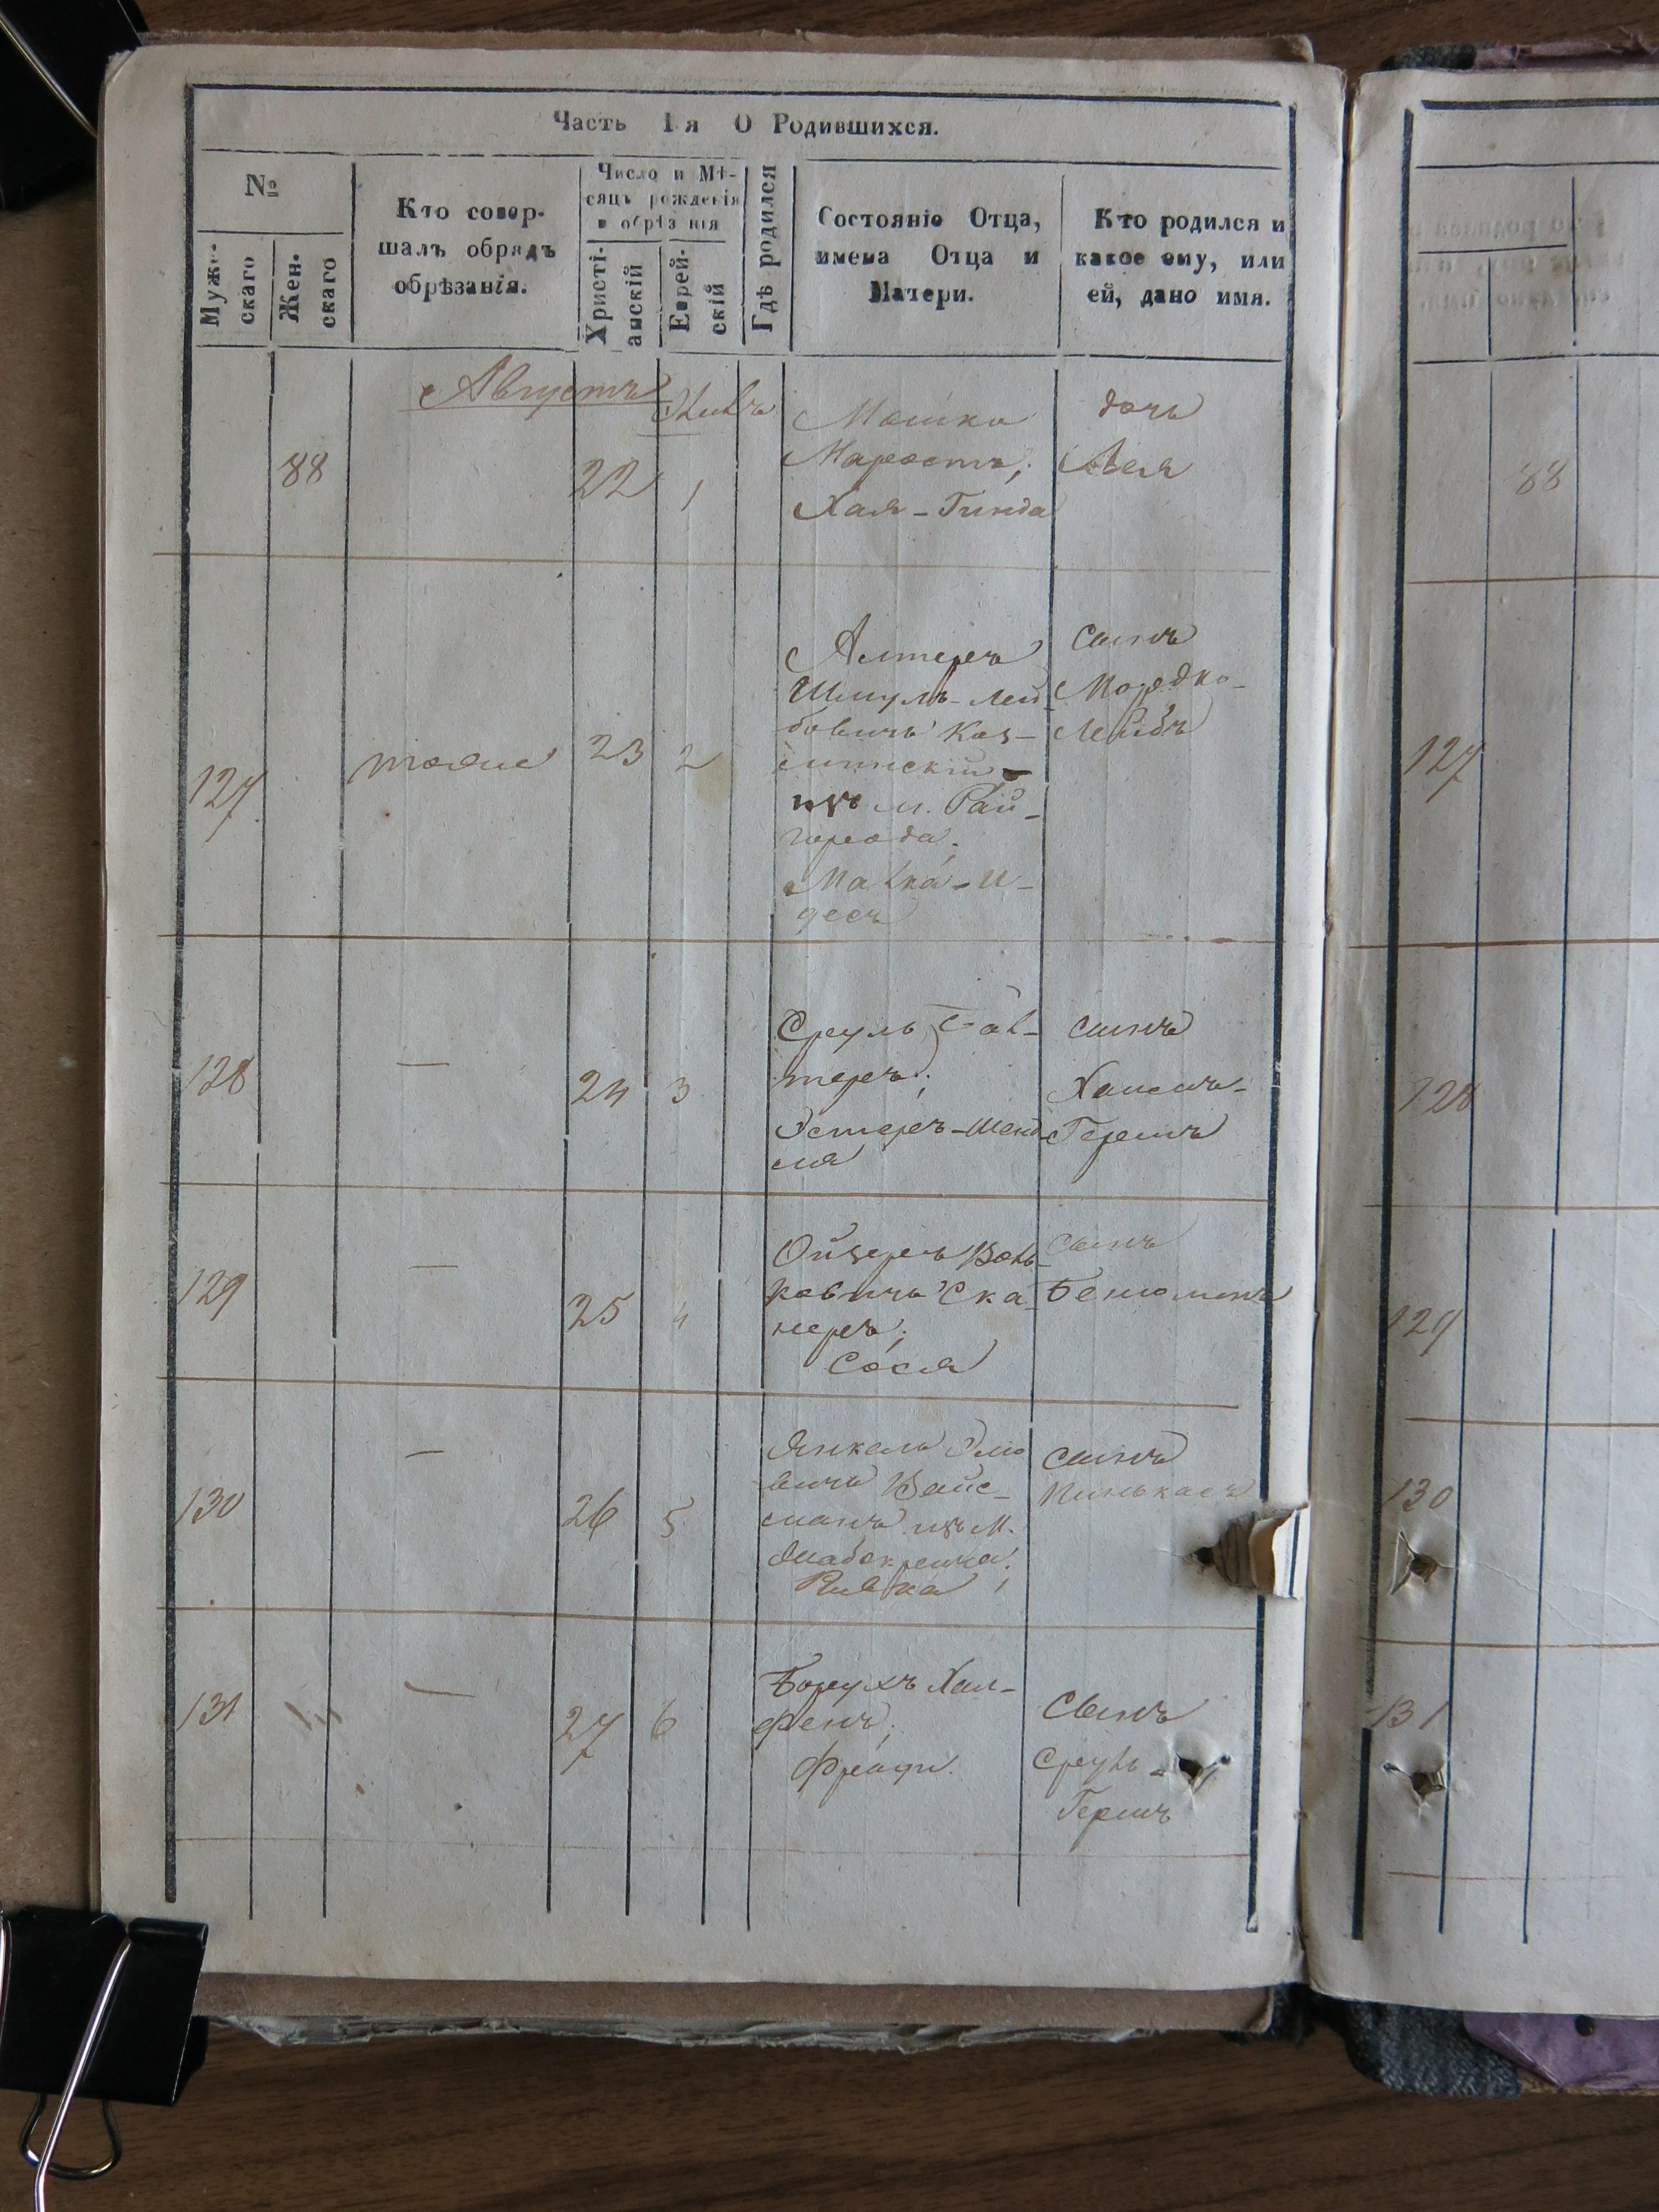 Часть I-я О Родившихся.
№
Мужескаго
Женскаго
Кто совер-
шалъ обрядъ
обрѣзанія.
Число и Мѣ-
сяцъ рожденія
и обрѣзанія
Христі-
анскій
Еврей-
скій
Гдѣ родился
Состояніе Отца,
имена Отца и
Матери.
Кто родился и
какое ему, или
ей, дано имя.
Августъ
88
22
1
Мошко
Хая-Гинда
дочь
Лея
127
тоже
23
2
Алтеръ
Шмуль-Лей
бовичъ Каз-
изъ м. Рай-
города;
Малка-И-
десъ
сынъ
Мордко-
Лейбъ
128
—
24
3
Сруль
теръ;
Эстеръ-Шейн
сынъ
Гершъ
129
—
25
4
Ойзеръ Воль-
ковичъ Ска-
неръ;
Сося
сынъ
Бенюменъ
130
—
26
5
Янкель Элю
вичъ Вайс-
манъ изъ м.
Ривка
сынъ
Пинькасъ
131
—
27
6
Борухъ Хал-
фенъ;
сынъ
Сруль-
Гершъ
88
127
128
129
130
131